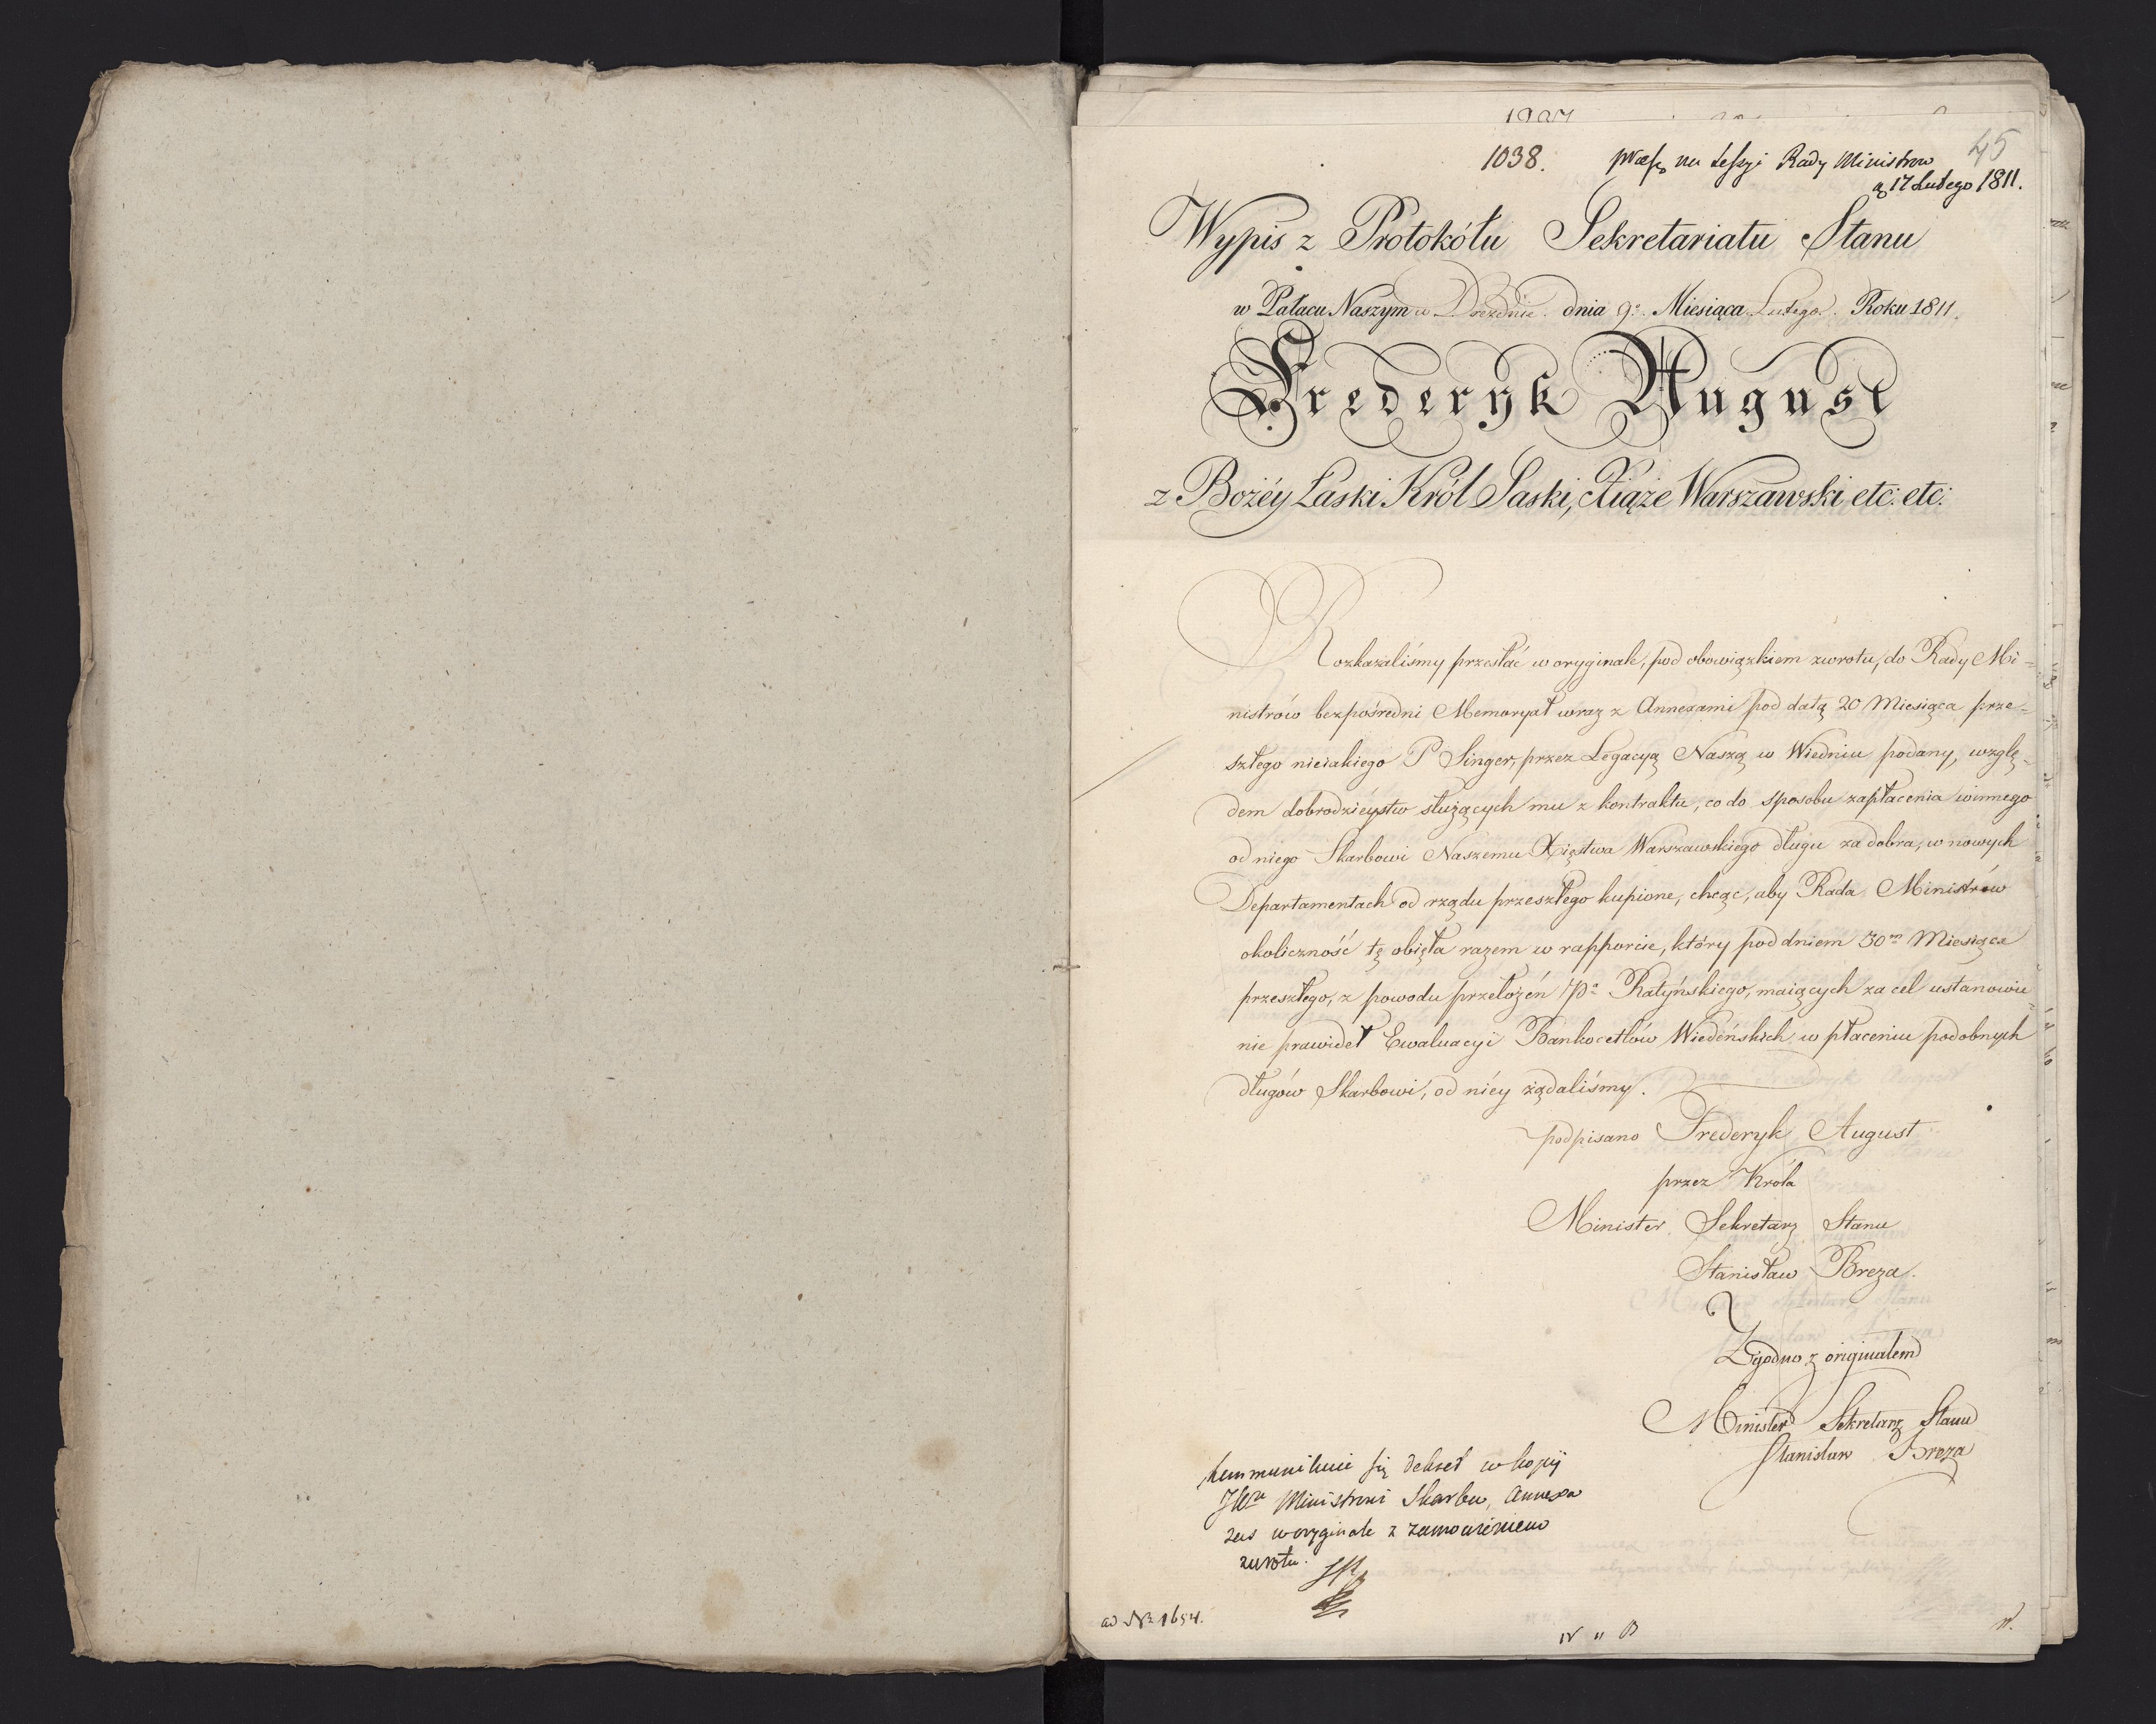 45
1038. præs. na Sessyi Rady Ministrow
d. 17 Lutego 1811.
Wypis z Protokółu Sekretariatu Stanu
w Pałacu Naszym w Dreźdnie dnia 9º Miesiąca Lutego Roku 1811.
Frederyk August
z Bożéy Łaski Król Saski, Xiąże Warszawski etc: etc:
Rozkazaliśmy przesłać w oryginale, pod obowiązkiem zwrotu, do Rady Mi-
nistrów bezpośredni Memoryał wraz z Annexami pod datą 20 Miesiąca prze-
szłego nieiakiego P Singer, przez Legacyą Naszą w Wiedniu podany, wzglę-
dem dobrodzieystw służących mu z kontraktu, co do sposobu zapłacenia winnego
od niego Skarbowi Naszemu Xięstwa Warszawskiego długu za dobra, w nowych
Departamentach od rządu przeszłego kupione, chcąc, aby Rada Ministrów
okoliczność tę obięła razem w rapporcie, który pod dniem 30m Miesiąca
przeszłego, z powodu przełożeń Pa Ratyńskiego, maiących za cel ustanowie
nie prawideł Ewaluacyi Bankocetlów Wiedeńskich w płaceniu podobnych
długów Skarbowi, od niéy żądaliśmy.
podpisano Frederyk August
przez Króla
Minister Sekretarz Stanu
Stanisław Breza.
Zgodno z originałem
Minister Sekretarz Stanu
Stanisław Breza
kommunikuie się dekret w kopij
JWu Ministrowi Skarbu, Annexa
zas w oryginale z zamowieniem
zwrotu.
ad Nr 1654.